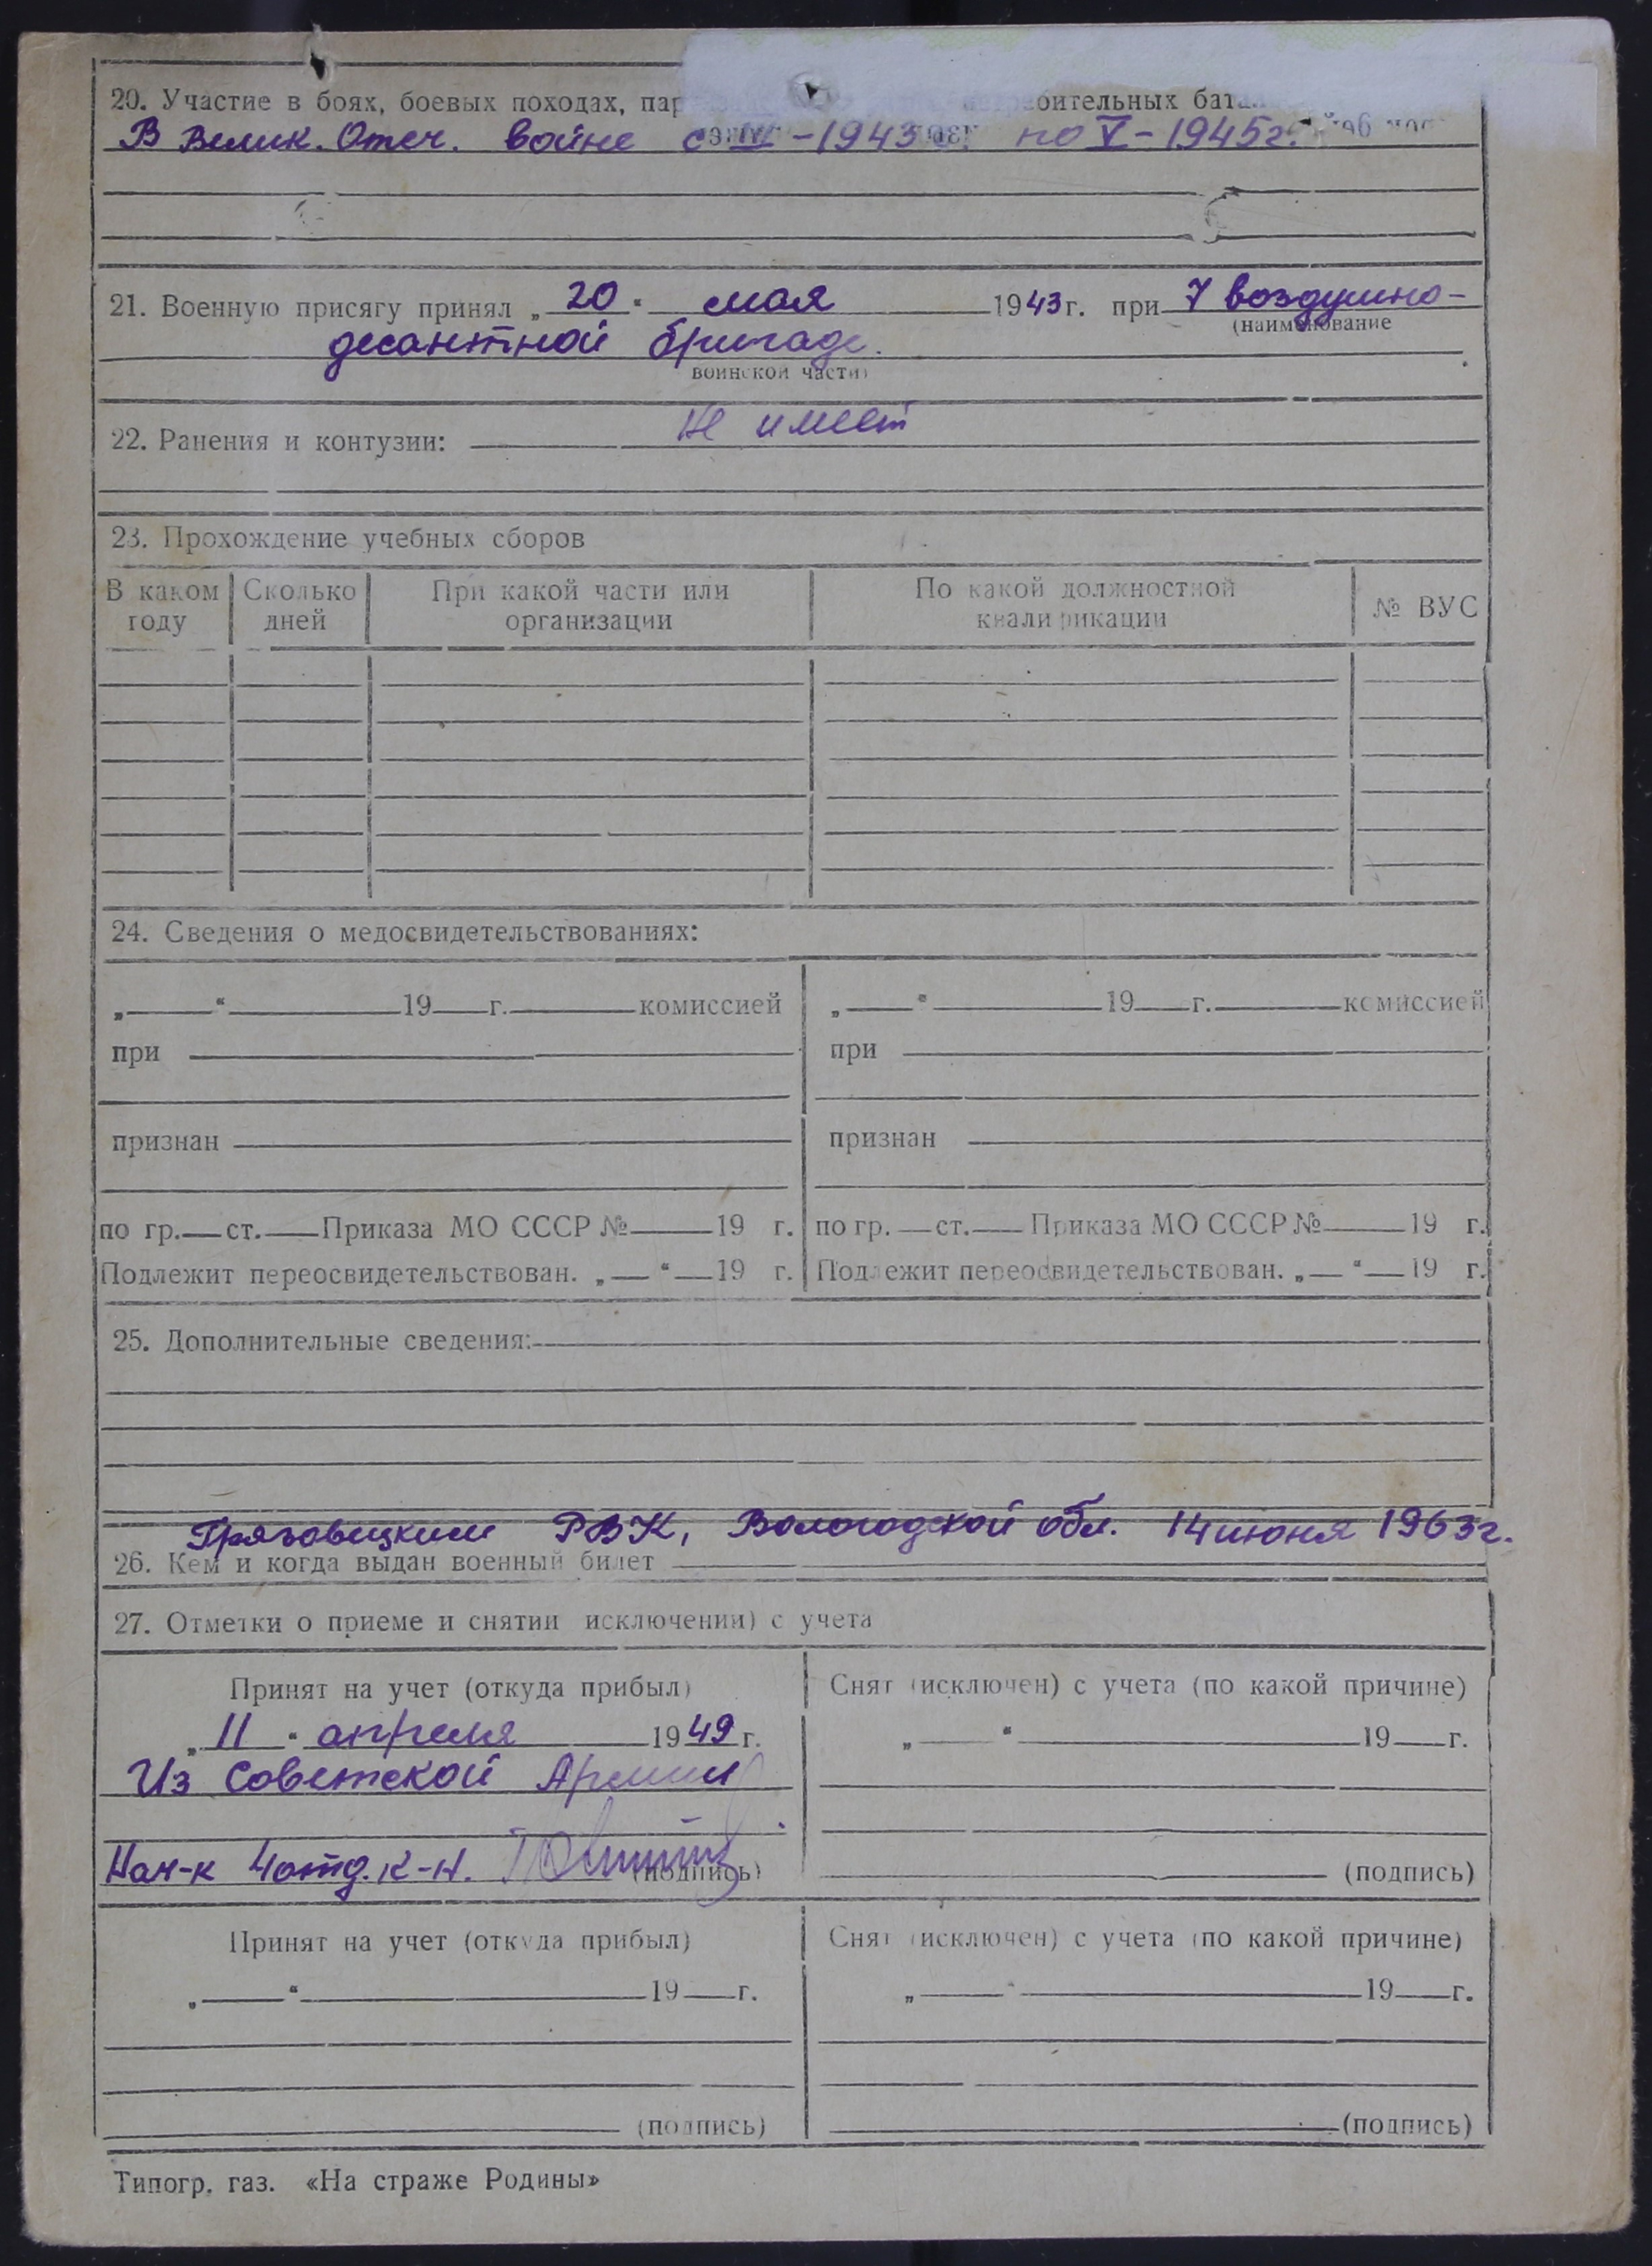 20. Участие в боях, боевых походах, пар бительных бата
В Велик. Отеч. войне с -1943 по V-1945г.
21. Военную присягу принял „20“ мая 1943г. при 7 воздушно-
(наименование
десантной бригаде.
воинской части)
22. Ранения и контузии: не имеет
23. Прохождение учебных сборов
В каком Сколько При какой части или По какой должностной № ВУС
году дней организации квалификации
24. Сведения о медосвидетельствованиях:
„ “ 19 г. комиссией „ “ 19 г. комиссией
при при
признан признан
по гр. ст. Приказа МО СССР № 19 г. по гр. ст. Приказа МО СССР № 19 г.
Подлежит переосвидетельствован. „ “ 19 г. Подлежит переосвидетельствован. „ “ 19 г.
25. Дополнительные сведения:
Грязовецким РВК, Вологодской обл. 14 июня 1963г.
26. Кем и когда выдан военный билет
27. Отметки о приеме и снятии исключении) с учета
Принят на учет (откуда прибыл) Снят (исключен) с учета (по какой причине)
„11“ апреля 1949 г. „ “ 19 г.
Из Советской Армии
Нач-к 4 отд. к-н. (подпись) (подпись)
Принят на учет (откуда прибыл) Снят (исключен) с учета (по какой причине)
„ “ 19 г. „ “ 19 г.
(подпись) (подпись)
Типогр. газ. «На страже Родины»